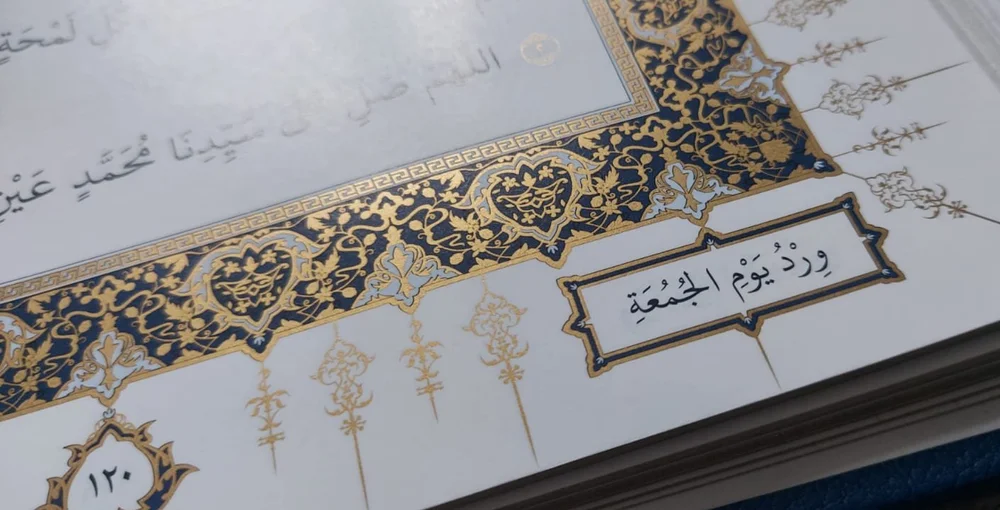 لَمْحَةٍ
اللهم صَلِّ سَيِّدِنَا مُحَمَّدٍ عَيْنِ
وِرْدُ يَوْمِ الْجُمُعَةِ
١٢٠